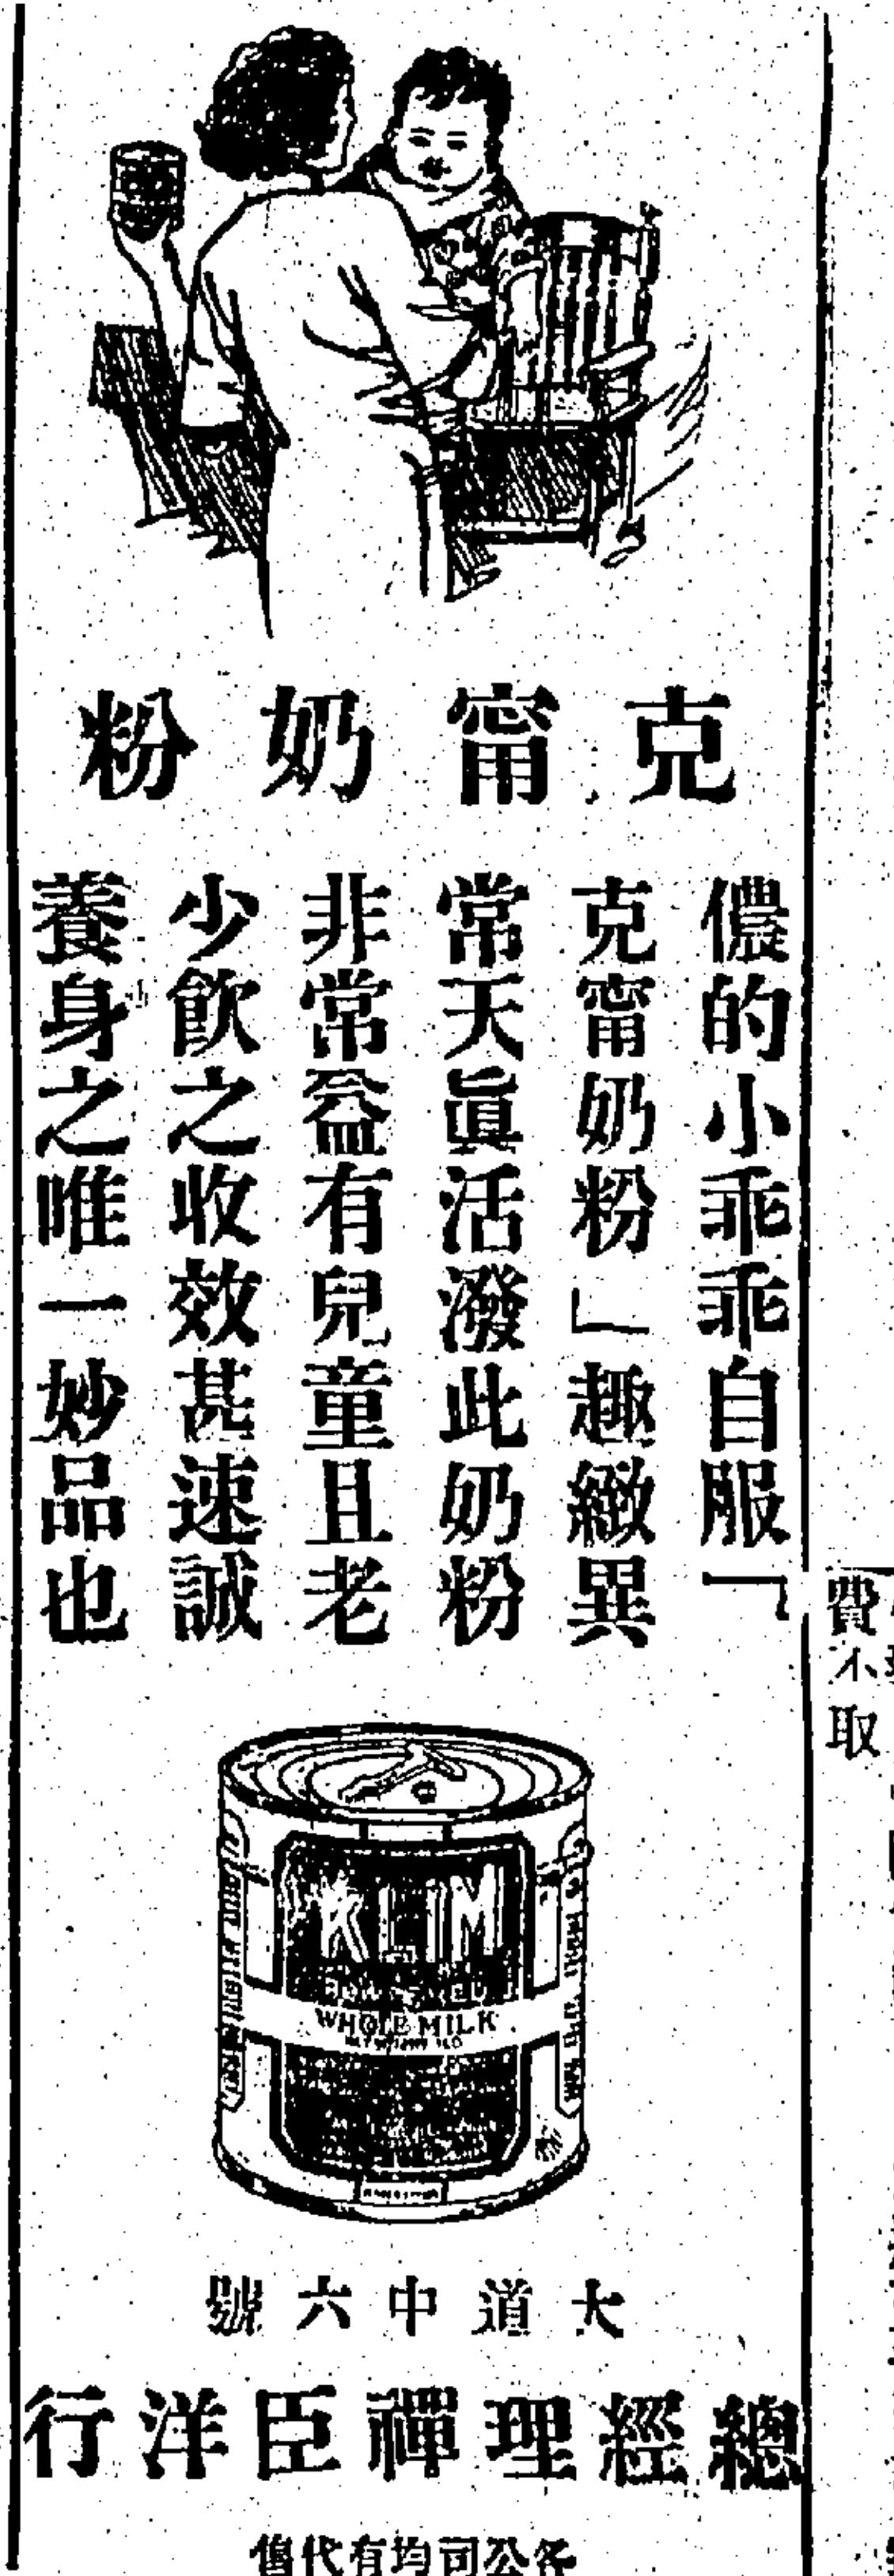 克甯奶粉
儂的小乖乖自服「
克甯奶粉」趣緻異
常天眞活潑此奶粉
非常益有兒童且老
少飲之收效甚速誠
養身之唯一妙品也
KLIM
WHOLE MILK
大道中六號
總經理禪臣洋行
各公司均有代售
費不取